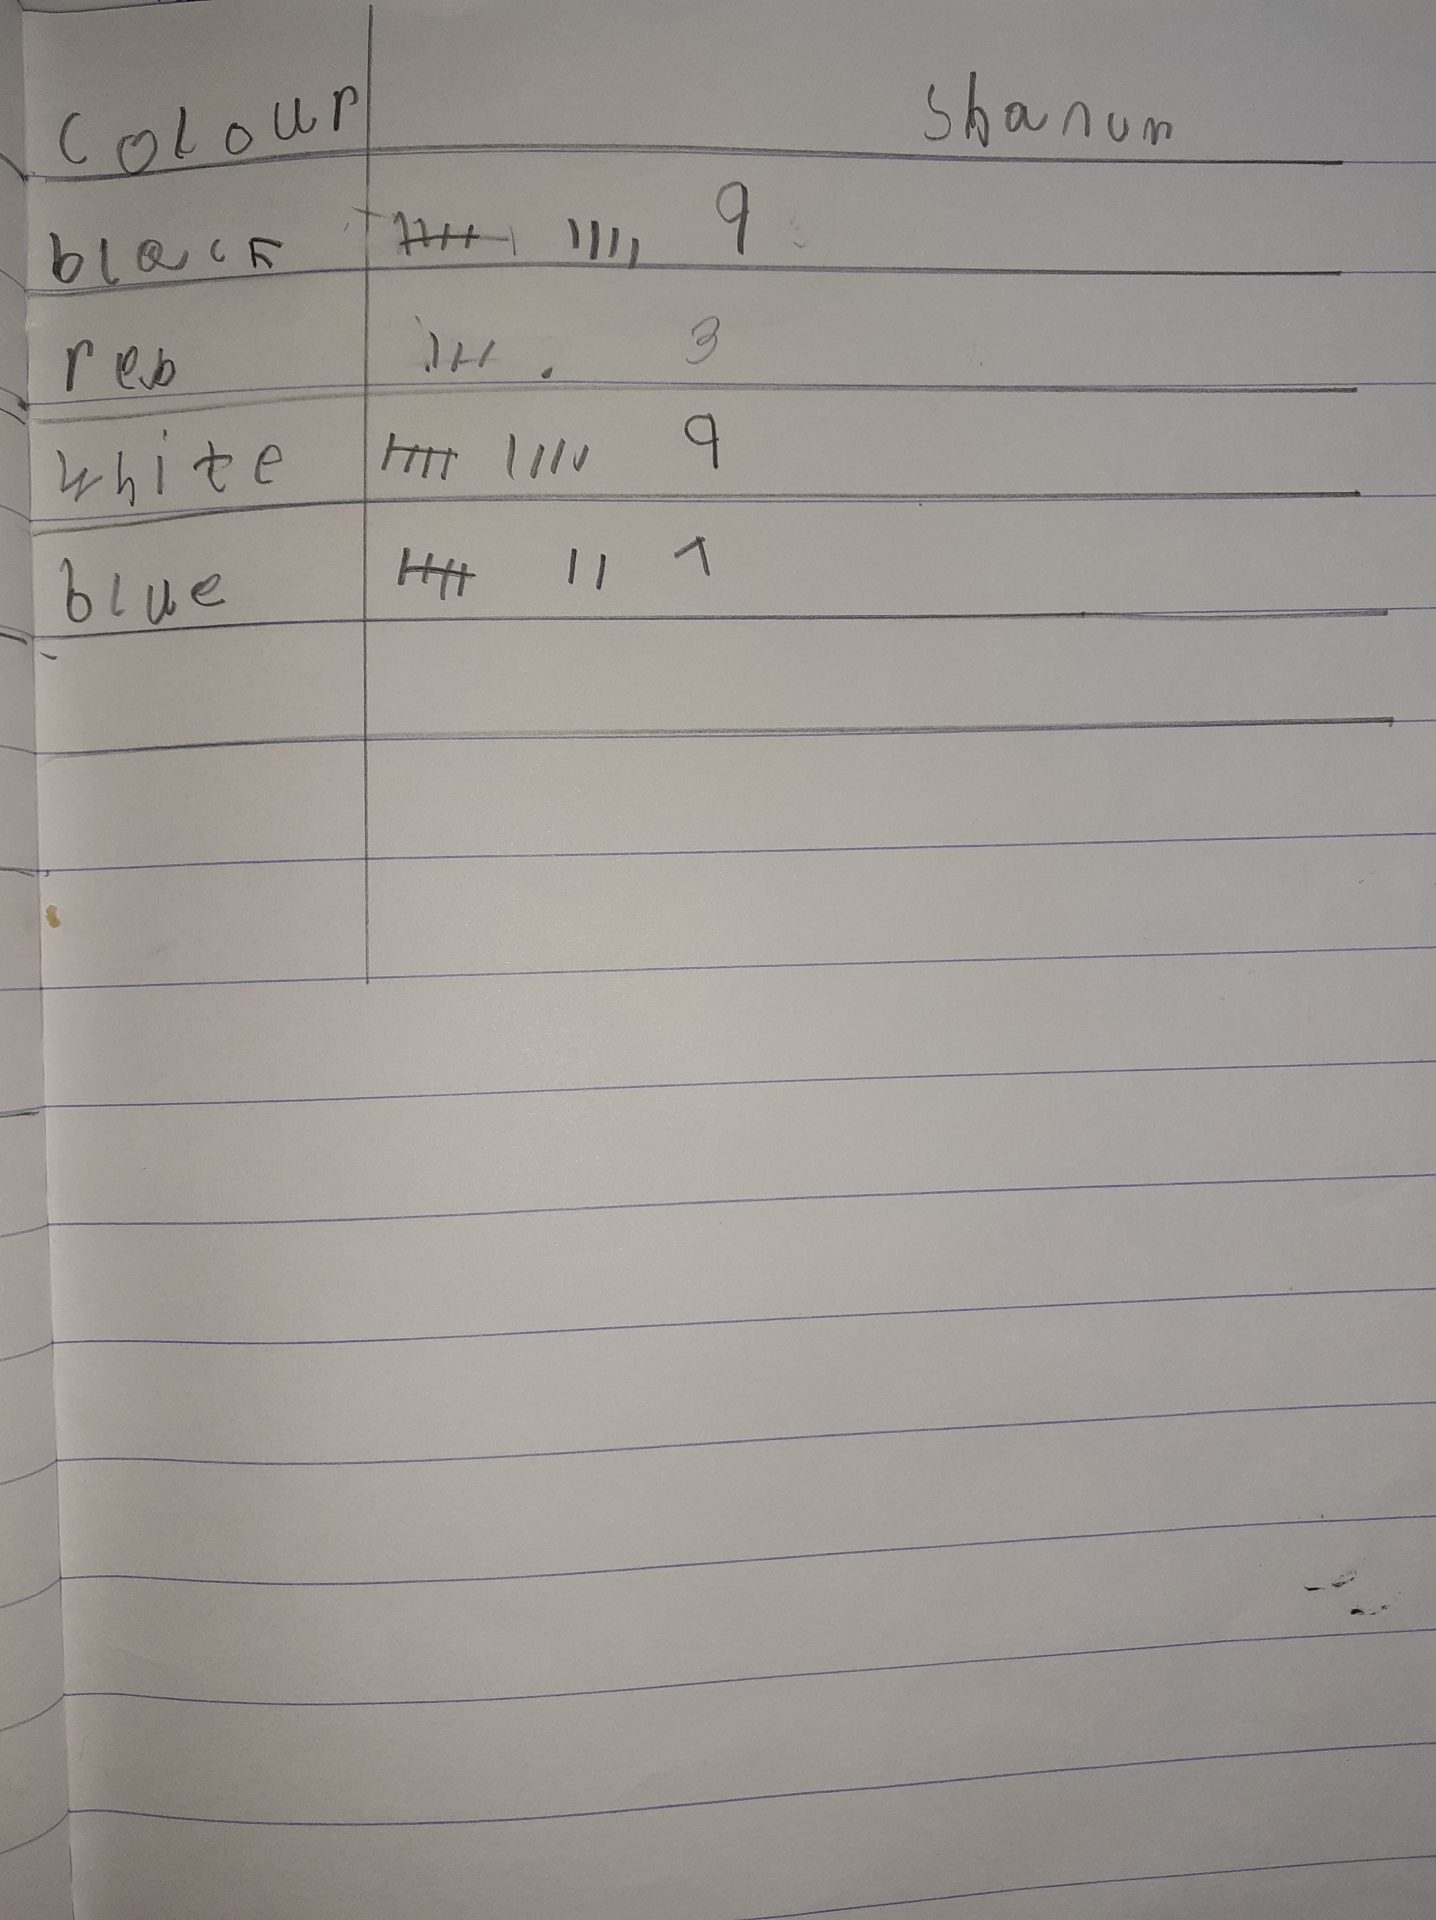 Colour Shanum
black 𝍸 |||| 9
reb ||| . 3
white 𝍸 |||| 9
blue 𝍸 || 7